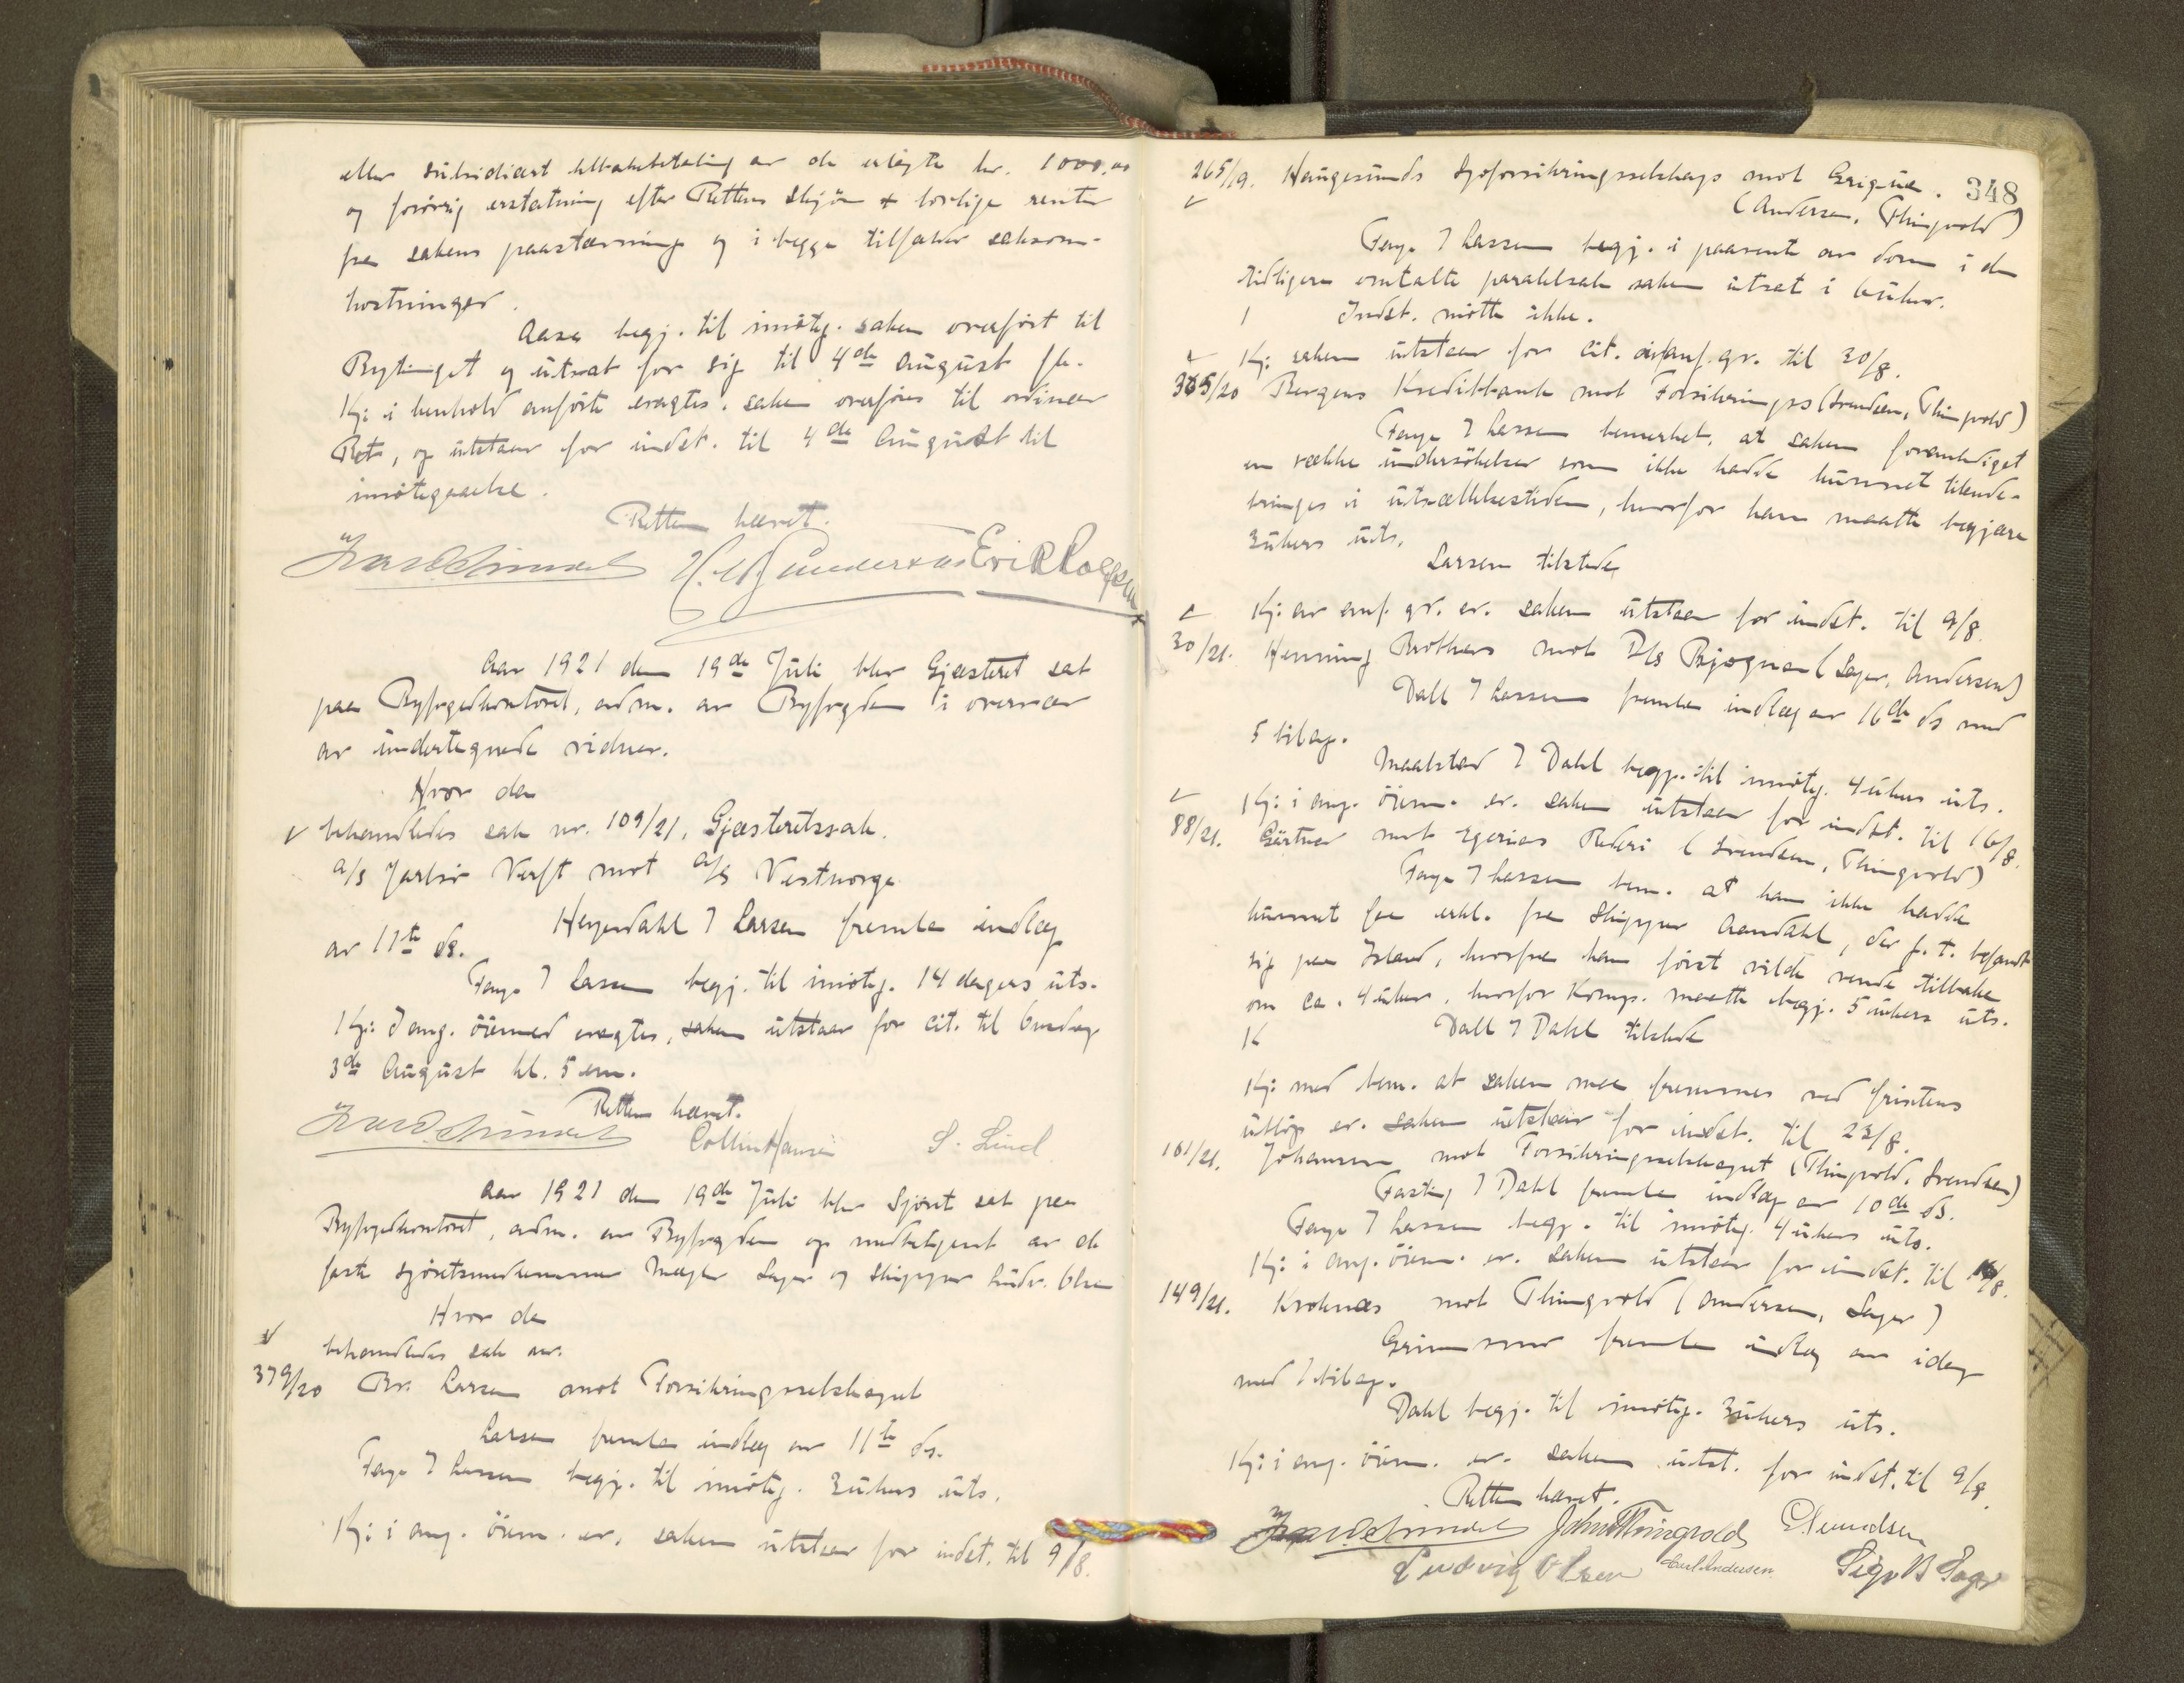 eller subsidiært tilbakebetaling av de erlagte kr. 1000,00
og forøvrig erstatning efter Rettens skjøn & lovlige renter
fra sakens paastævning og i begge tilfælder saksom-
kostninger.
Aase begj. til imøteg. saken overført til
Bytinget og utsat for sig til 4de August
Kj: i henhold anførte eragtes, saken overføres til ordinær
Ret, og utstaar for indst. til 4de August til
imøtegaaelse.
Retten hævet.
Erik Rolfsen
Aar 1921 den 19de Juli blev Gjæsteret sat
paa Byfogedkontoret, adm. av Byfogden i overvær
av undertegnede vidner.
Hvor da
behandledes sak nr. 109/21, Gjæsteretssak.
A/S Jarlsø Verft mot A/S Vestnorge
Heyerdahl f Larsen fremla indlæg
av 11te ds.
Faye f Larsen begj. til imøteg. 14 dagers uts.
Kj: I ang. øiemed eragtes, saken utstaar for cit. til Onsdag
3de August kl. 5 em.
Retten hævet.
Collin Hansen S. Lind
Aar 1921 den 19de Juli blev Sjøret sat paa
Byfogedkontoret, adm. av Byfogden og medbetjent av de
faste sjøretsmedlemmer Megler Sager og Skipper Ludv. Olsen
Hvor da
behandledes sak nr.
379/20 Br. Larsen mot Forsikringsselskapet
Larsen fremla indlæg av 11te ds.
Faye f Larsen begj. til imøteg. 3 ukers uts.
Kj: i ang. øiem. er. saken utstaar for indst. til 9/8.
348
265/19. Haugesunds Sjøforsikringsselskaps mot Grigua.
(Andersen, Thingvold)
Faye f Larsen begj. i paavente av dom i den
tidligere omtalte paralelsak saken utsat i 6 uker.
Indst. møtte ikke.
Kj: saken utstaar for cit. av anf. gr. til 30/8.
365/20 Bergens Kreditbank mot Forsikrings (Svendsen, Thingvold)
Faye f Larsen bemerket, at saken foranlediget
en række undersøkelser som ikke hadde kunnet tilende-
bringes i utsættelsestiden, hvorfor han maatte begjære
3 ukers uts.
Larsen tilstede
Kj: av anf. gr. er. saken utstaar for indst. til 9/8.
30/21. Henning Brothers mot D/S Bjøgna (Sager, Andersen)
Dall f Larsen fremla indlæg av 16de ds med
5 bilag.
Maalstad f Dahl begj. til imøteg. 4 ukers uts.
Kj: i ang. øiem. er. saken utstaar for indst. til 16/8.
88/21. Gärtner mot Egerias Rederi (Svendsen, Thingvold)
Faye f Larsen bem. at han ikke hadde
kunnet faa erkl. fra Skipper Aandahl, der f. t. befandt
sig paa Island, hvorfra han først vilde vende tilbake
om ca. 4 uker, hvorfor Komp. maatte begj. 5 ukers uts.
Dall f Dahl tilstede
Kj: med bem. at saken maa fremmes ved fristens
utløp er. saken utstaar for indst. til 23/8.
101/21. Johannsen mot Forsikringsselskapet (Thingvold, Svendsen)
Fasting f Dahl fremla indlæg av 10de ds.
Faye f Larsen begj. til imøteg. 4 ukers uts.
Kj: i ang. øiem. er. saken utstaar for indst. til 16/8.
149/21. Kroknæs mot Thingvold (Andersen, Sager)
Grimsmo fremla indlæg av idag
med 7 bilag.
Dahl begj. til imøteg. 3 ukers uts.
Kj: i ang. øiem. er. saken utst. for indst. til 9/8.
Retten hævet.
John Thingvold E. Svendsen
Ludvig Olsen Carl Andersen Sigv. B Sager